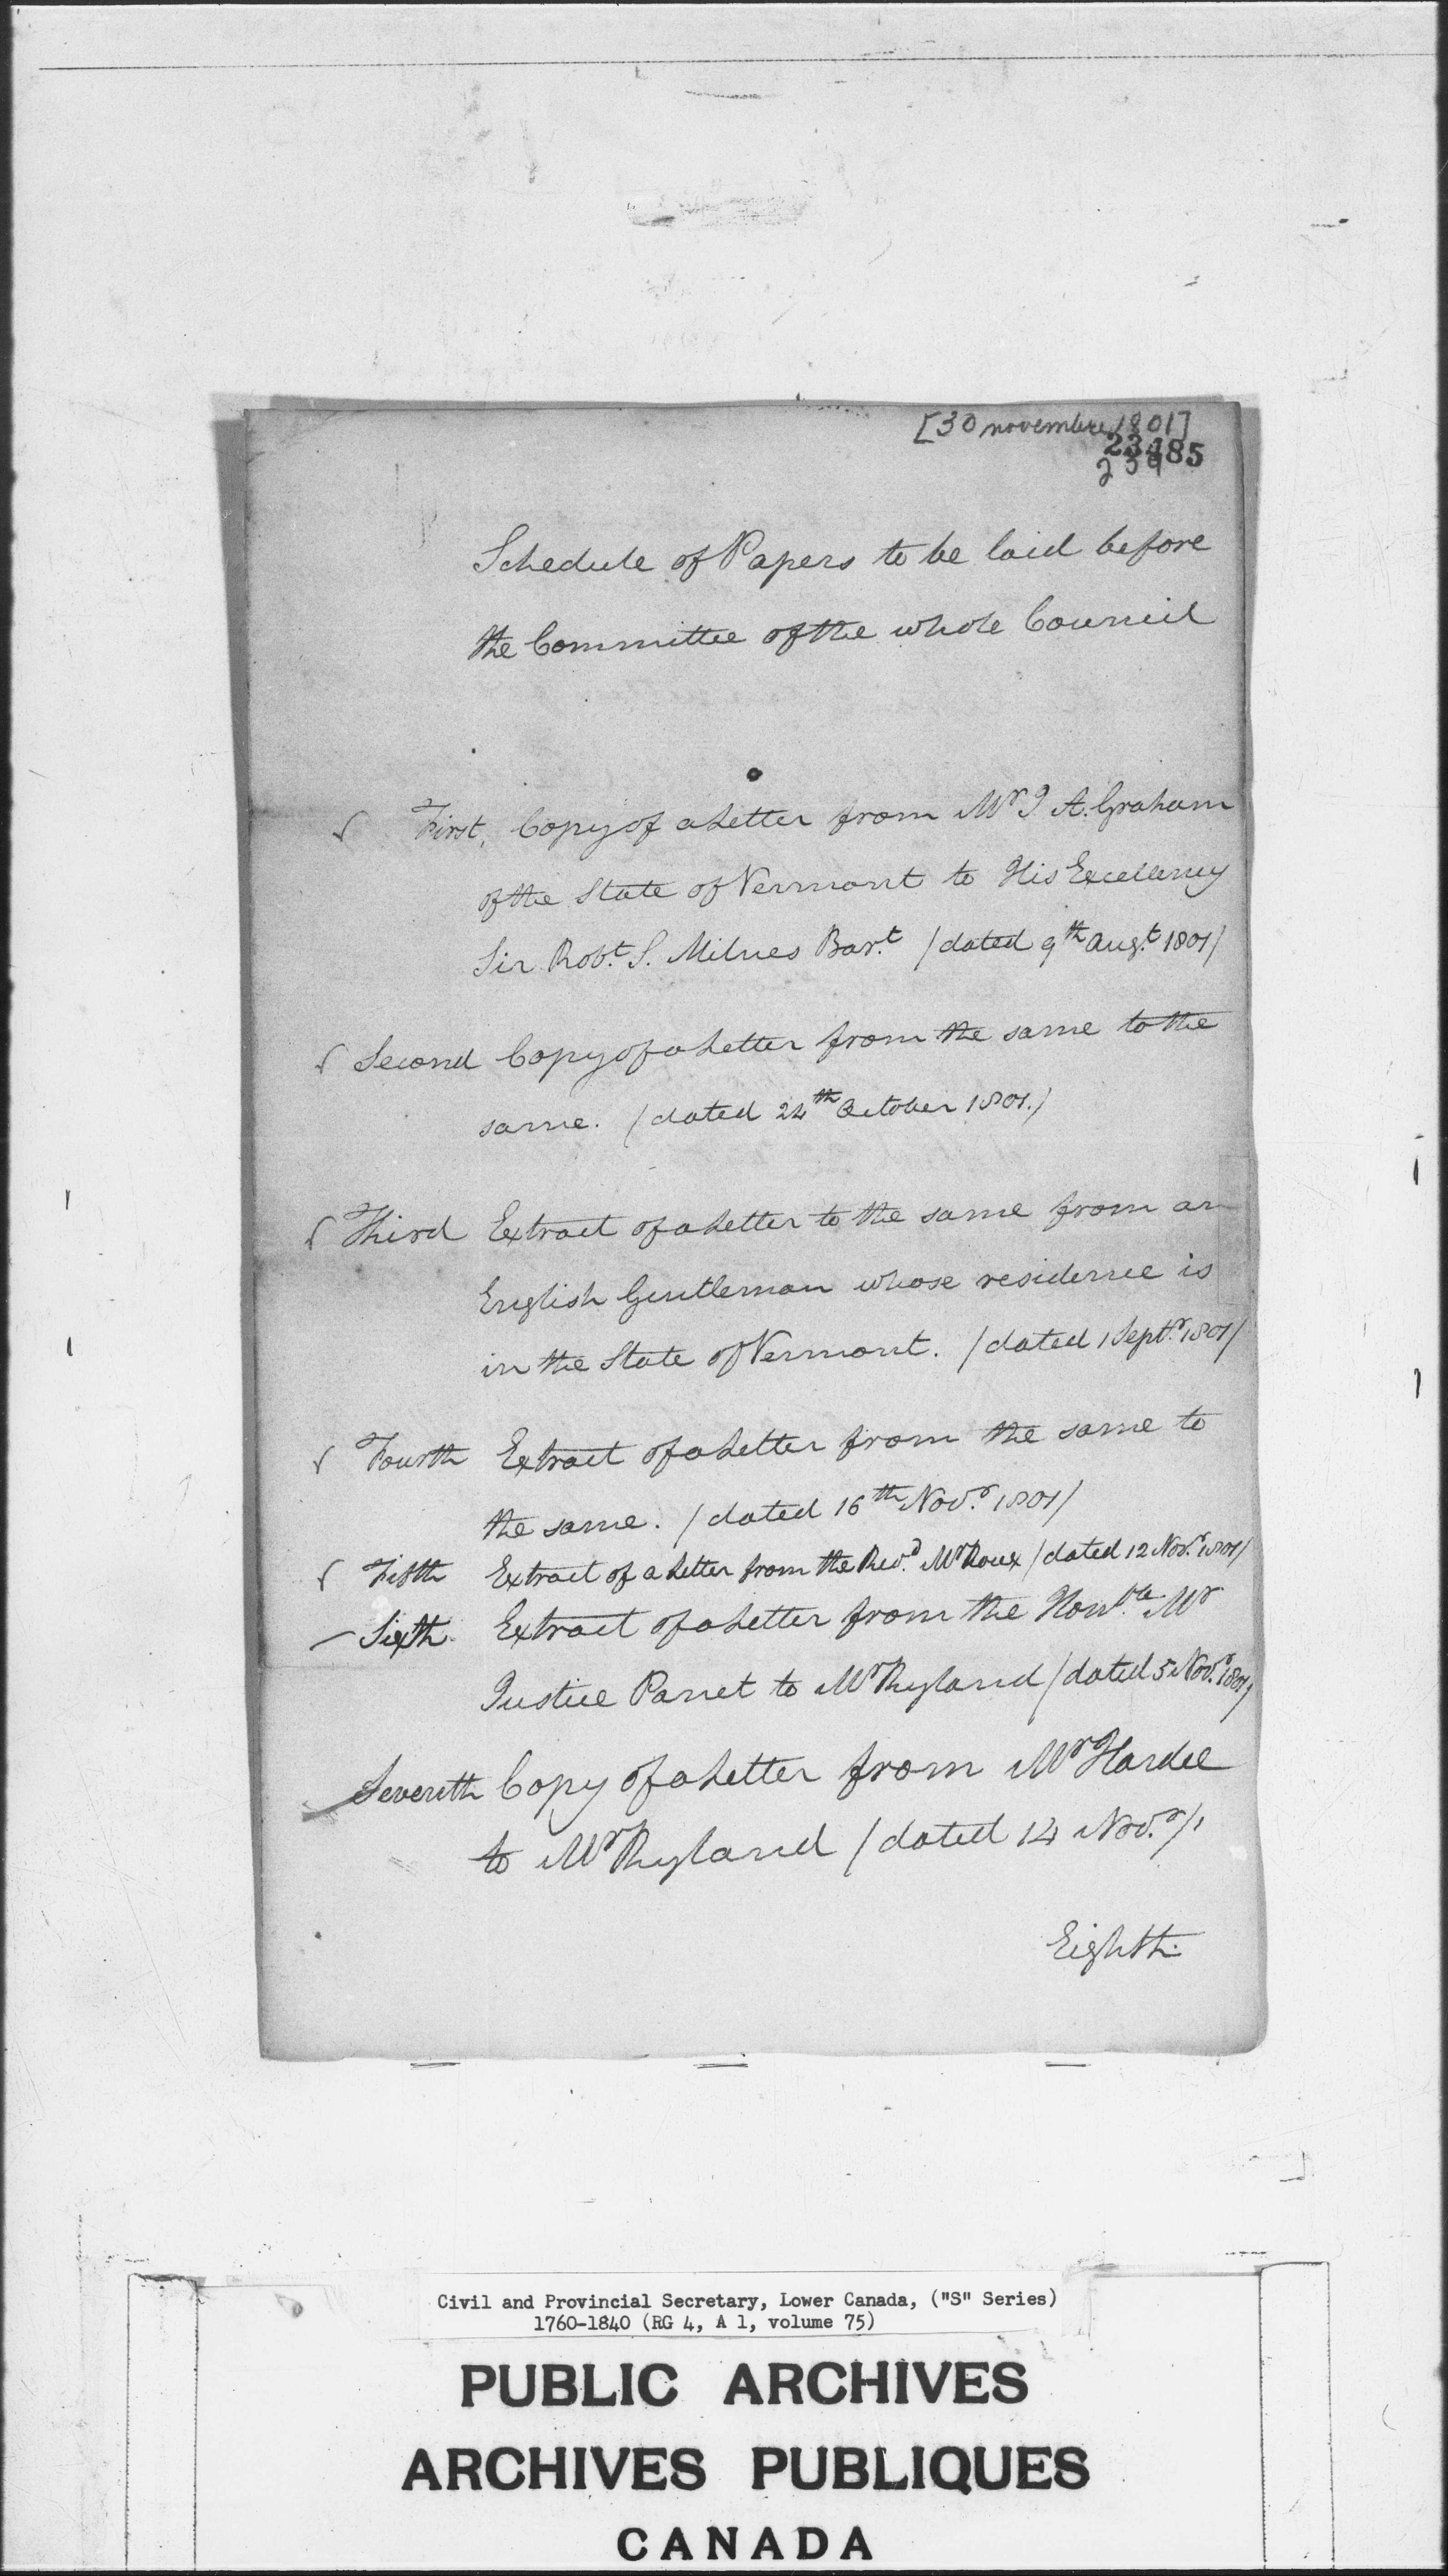 [30 novembre 1801]
23485
239
Schedule of Papers to be laid before
the Committee of the whole Council
First, Copy of a Letter from Mr J. A. Graham
of the State of Vermont to His Excellency
Sir Robt. S. Milnes Bart. / dated 9th Augt. 1801/
Second Copy of a Letter from the same to the
same. / dated 24th October 1801./
Third Extract of a Letter to the same from an
English Gentleman whose residence is
in the State of Vermont. / dated 1 Septr. 1801/
Fourth Extract of a Letter from the same to
the same. / dated 16th Novr. 1801/
Fifth Extract of a Letter from the Revd. Mr Roux / dated 12 Novr. 1801/
Sixth Extract of a Letter from the Honble. Mr
Justice Panet to Mr Ryland / dated 5 Novr. 1801/
Seventh Copy of a Letter from Mr Hardie
to Mr Ryland / dated 14 Novr./
Eighth
Civil and Provincial Secretary, Lower Canada, ("S" Series)
1760-1840 (RG 4, A 1, volume 75)
PUBLIC ARCHIVES
ARCHIVES PUBLIQUES
CANADA